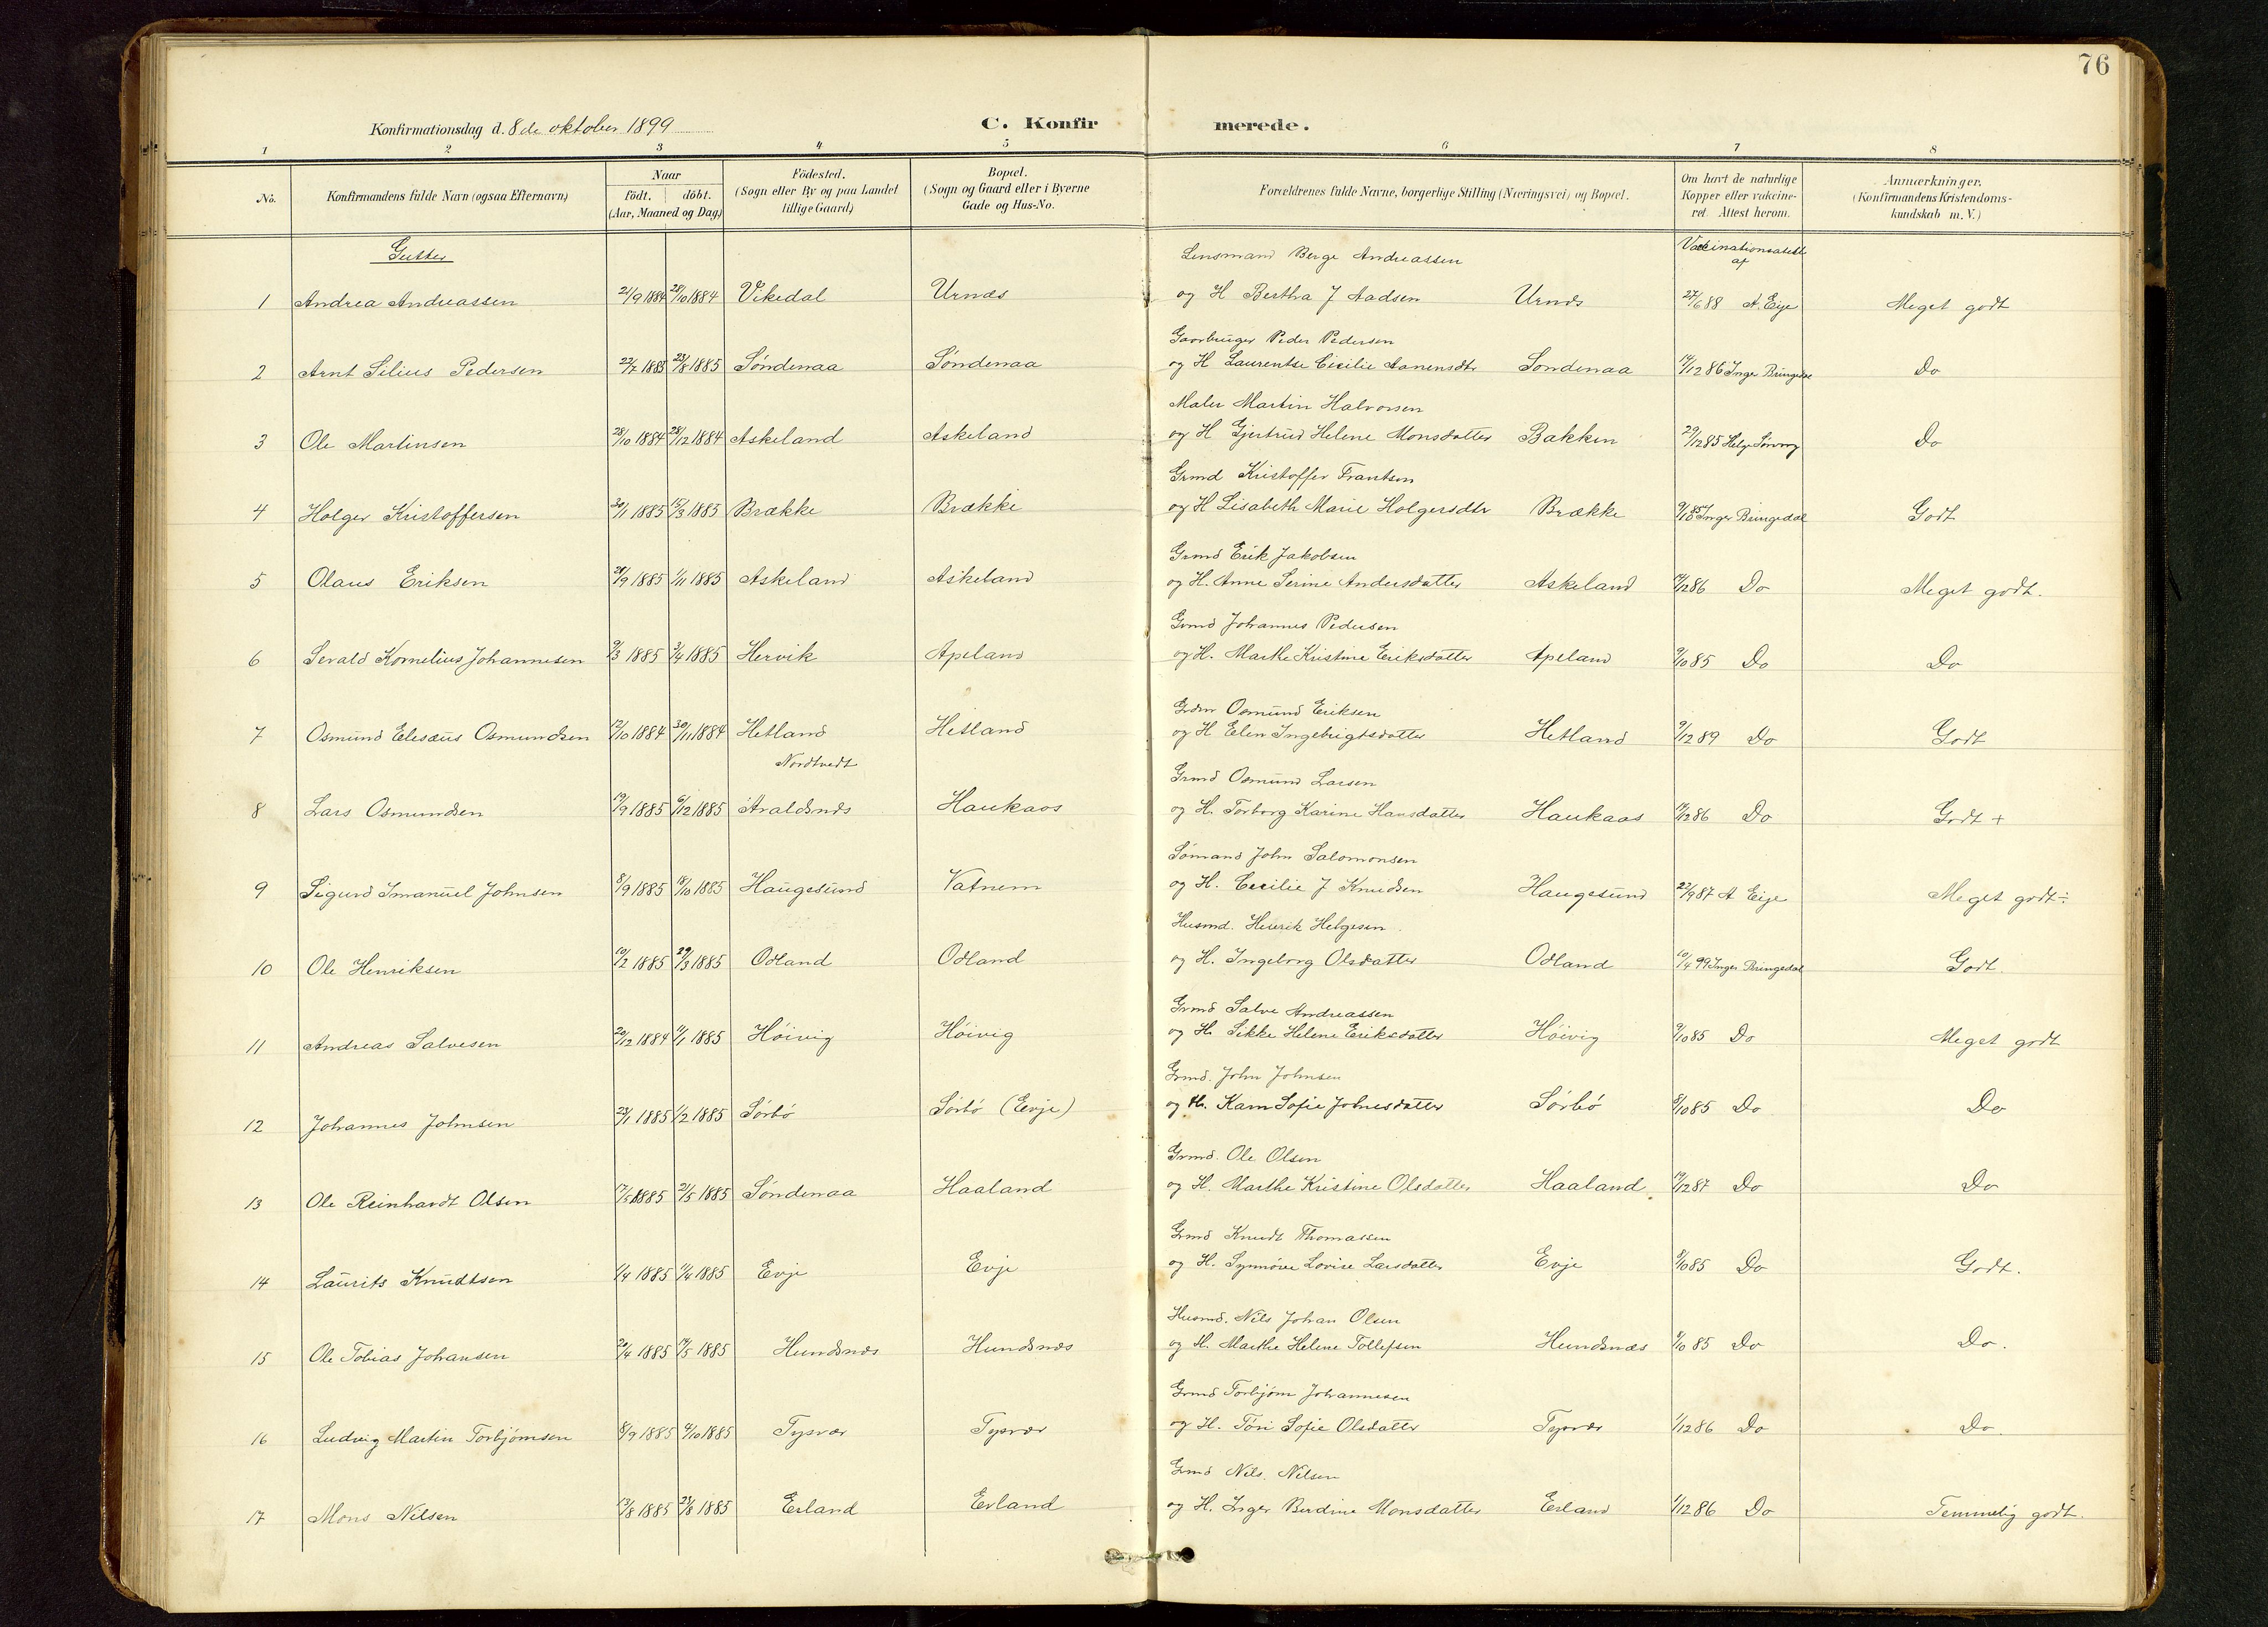 76
Konfirmationsdag d. 8de oktober 1899
C. Konfirmerede.
1 2 3 4 5 6 7 8
No.
Konfirmandens fulde Navn (ogsaa Efternavn)
Naar
födt. döbt.
(Aar, Maaned og Dag)
Födested.
(Sogn eller By og paa Landet
tillige Gaard)
Bopæl.
(Sogn og Gaard eller i Byerne
Gade og Hus-No.
Forældrenes fulde Navne, borgerlige Stilling (Næringsvei) og Bopæl.
Om havt de naturlige
Kopper eller vakcine-
ret. Attest herom.
Anmærkninger.
(Konfirmandens Kristendoms-
kundskab m. V.)
Gutter
Vaccinationsattest
af
Lensmand Berge Andreassen
1 Andrea Andreassen 21/9 1884 28/10 1884 Vikedal Urnæs og H Bertha J Aadsen Urnæs 27/6 88 A. Eije Meget godt
Gaardbruger Peder Pedersen
2 Arnt Silius Pedersen 22/7 1885 23/8 1885 Söndenaa Söndenaa og H Laurentse Cicilie Aanensdtr Sondenaa 14/12 86 Inger Bringedal Do
Maler Martin Halvorsen
3 Ole Martinsen 28/10 1884 28/12 1884 Askeland Askeland og H Gjertrud Helene Monsdatter Bakken 29/12 85 Helge Do
Grmd Kristoffer Frantsen
4 Holger Kristoffersen 30/1 1885 15/3 1885 Brække Brække og H Lisabeth Marie Holgersdtr Brække 9/10 85 Inger Bringedal Godt
Grmd Erik Jakobsen
5 Olaus Eriksen 29/9 1885 1/11 1885 Askeland Askeland og H. Anne Serine Andersdatter Askeland /12 86 Do Meget godt.
Grmd Johannes Pedersen
6 Sevald Kornelius Johannesen 9/3 1885 3/4 1885 Hervik Apeland og H. Marthe Kristine Eriksdatter Apeland 9/10 85 Do Do
Grdm Osmund Eriksen
7 Osmund Eliseus Osmundsen 12/10 1884 30/11 1884 Hetland Hetland og H Elen Ingebrigtsdatter Hetland 9/12 89 Do Godt
Nordtvedt
Grmd Osmund Larsen
8 Lars Osmundsen 19/9 1885 6/12 1885 Avaldsnæs Haukaas og H. Torborg Karine Hansdatter Haukaas /12 86 Do Godt +
Sömand John Salomonsen
9 Sigurd Imanuel Johnsen 8/9 1885 18/10 1885 Haugesund Vatnem og H. Cecilie J Knudsen Haugesund 22/9 87 A Eije Meget godt ÷
Husmd. Henrik Helgesen
10 Ole Henriksen 10/2 1885 29/3 1885 Odland Odland og H. Ingeborg Olsdatter Odland 10/4 99 Inger Bringedal Godt.
Grmd Salve Andreassen
11 Andreas Salvesen 20/12 1884 11/1 1885 Höivig Höivig og H. Sikke Helene Eriksdatter Höivig 9/10 85 Do Meget godt
Grmd. John Johnsen
12 Johannes Johnsen 23/1 1885 1/2 1885 Sörbö Sörbö (Evje) og H. Karn Sofie Johnesdatter Sörbö 8/10 85 Do Do
Grmd. Ole Olsen
13 Ole Reinhardt Olsen 17/5 1885 21/5 1885 Söndenaa Haaland og H. Marthe Kristine Olsdatter Haaland 19/12 87 Do Do
Grmd Knudt Thomassen
14 Laurits Knudtsen /4 1885 /4 1885 Evje Evje og H. Synnöve Lovise Larsdatter Evje 9/10 85 Do Godt.
Husmd. Nils Johan Olsen
15 Ole Tobias Johansen 20/4 1885 14/5 1885 Hundsnæs Hundsnæs og H. Marthe Helene Tollefsen Hundsnæs 9/10 85 Do Do.
Grmd Torbjörn Johannesen
16 Ludvig Martin Torbjörnsen 8/9 1885 4/10 1885 Tysvær Tysvær og H. Töri Sofie Olsdatter Tysvær 1/12 86 Do Do.
Grmd Nils. Nilsen
17 Mons Nilsen 13/8 1885 23/8 1885 Erland Erland og H. Inger Berdine Monsdatter Erland 1/12 86 Do Temmelig godt.